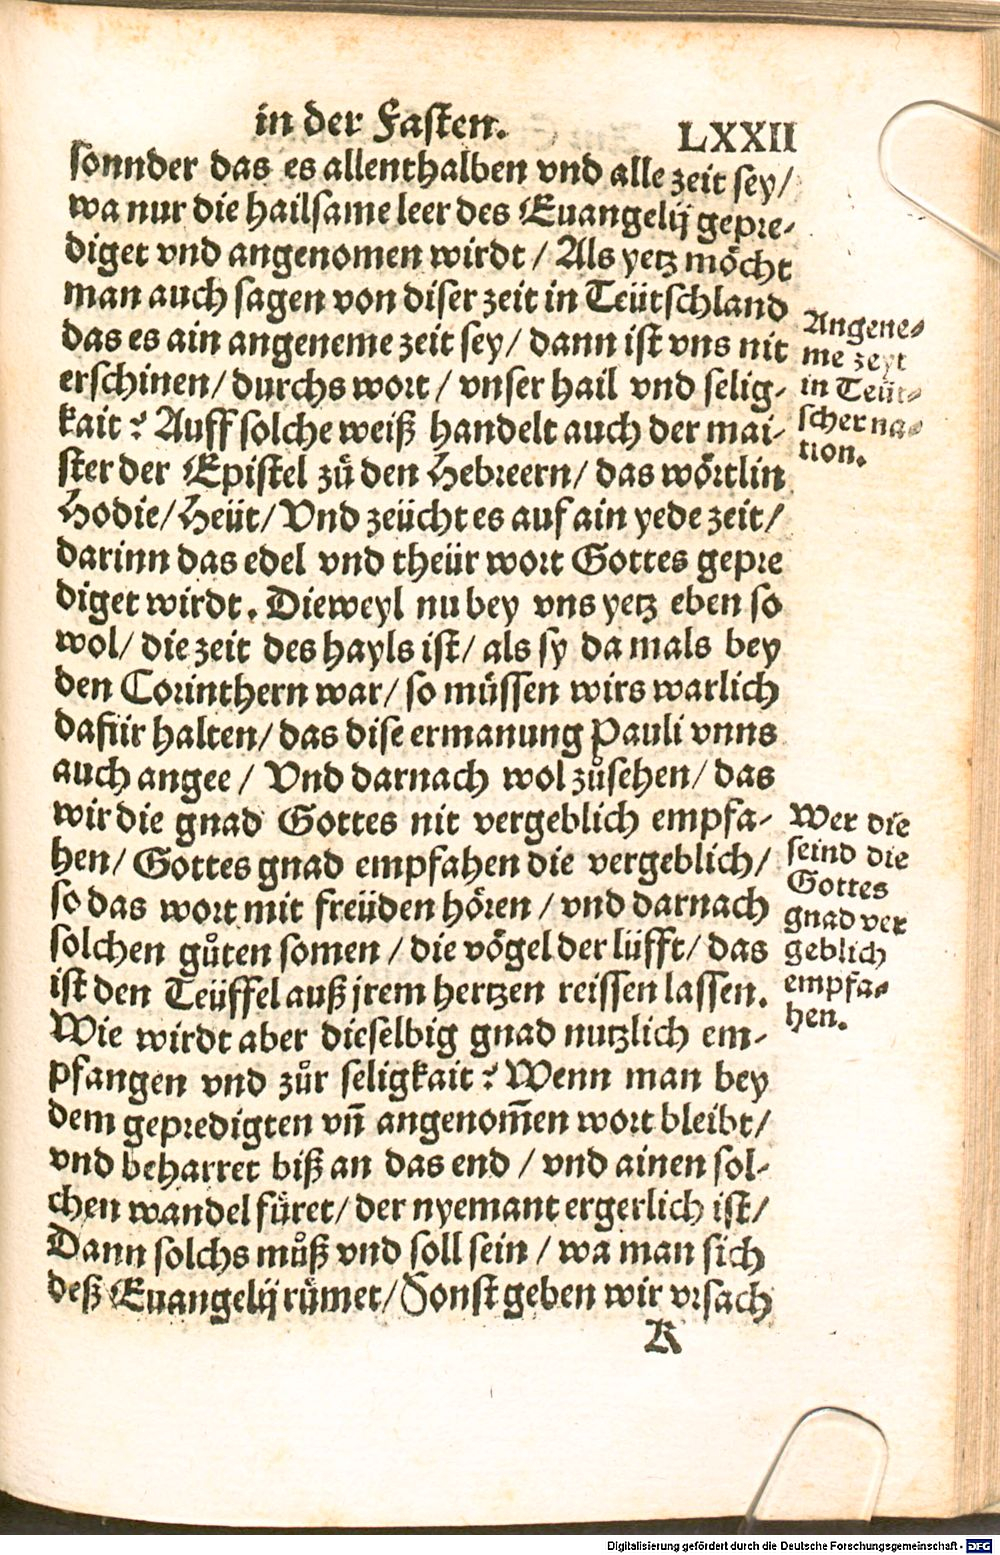 in der Fasten. LXXII
sonnder das es allenthalben vnd alle zeit sey/
wa nur die hailsame leer des Euangelij gepre-
diget vnd angenomen wirdt / Als yetz möcht
man auch sagen von diser zeit in Teütschland
das es ain angeneme zeit sey/ dann ist vns nit
erschinen/ durchs wort / vnser hail vnd selig-
kait? Auff solche weiß handelt auch der mai-
ster der Epistel zů den Hebreern/ das wörtlin
Hodie/ Heüt/ Vnd zeücht es auf ain yede zeit/
darinn das edel vnd theür wort Gottes gepre
diget wirdt. Dieweyl nu bey vns yetz eben so
wol/ die zeit des hayls ist/ als sy da mals bey
den Corinthern war/ so müssen wirs warlich
dafür halten/ das dise ermanung Pauli vnns
auch angee / Vnd darnach wol zůsehen/ das
wir die gnad Gottes nit vergeblich empfa-
hen/ Gottes gnad empfahen die vergeblich/
so das wort mit freüden hören / vnd darnach
solchen gůten somen / die vögel der lüfft/ das
ist den Teüffel auß jrem hertzen reissen lassen.
Wie wirdt aber dieselbig gnad nutzlich em-
pfangen vnd zůr seligkait? Wenn man bey
dem gepredigten vn̄ angenom̄en wort bleibt/
vnd beharret biß an das end / vnd ainen sol-
chen wandel füret/ der nyemant ergerlich ist/
Dann solchs můß vnd soll sein / wa man sich
deß Euangelij rümet/ Sonst geben wir vrsach
K
Angene-
me zeyt
in Teüt-
scher na-
tion.
Wer die
seind die
Gottes
gnad ver
geblich
empfa-
hen.
Digitalisierung gefördert durch die Deutsche Forschungsgemeinschaft - DFG